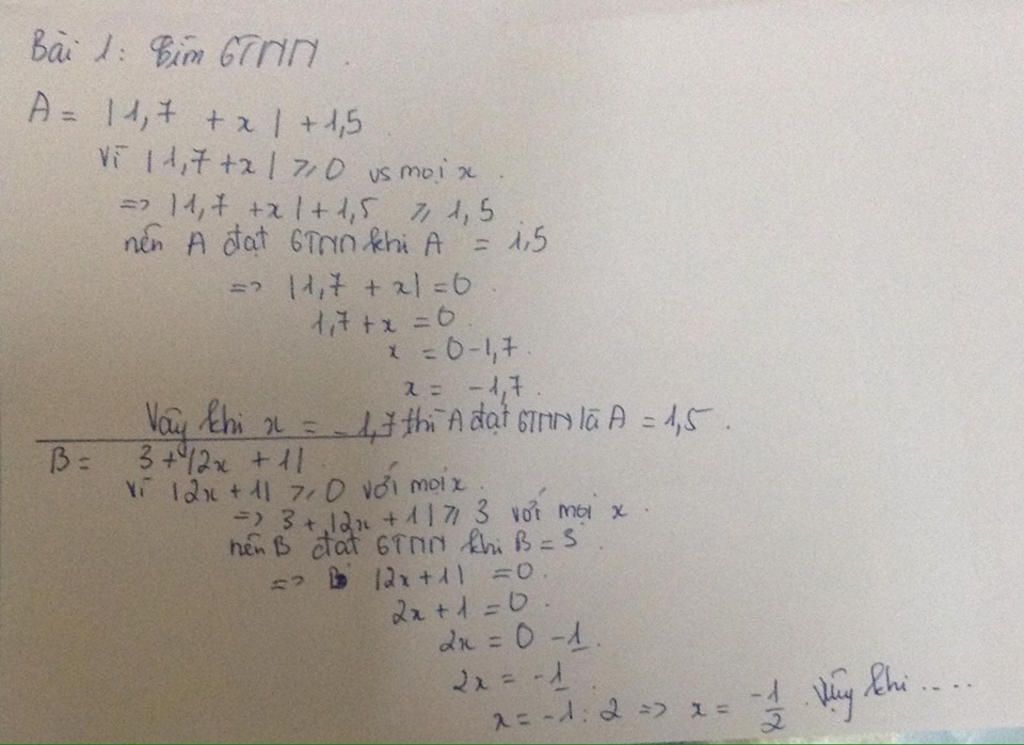 Bài 1: Tìm GTNN.
A = |1,7 + x| + 1,5
Vì |1,7 + x| ⩾ 0 vs mọi x.
=> |1,7 + x| + 1,5 ⩾ 1,5
nên A đạt GTNN khi A = 1,5
=> |1,7 + x| = 0.
1,7 + x = 0.
x = 0 - 1,7.
x = -1,7.
Vậy khi x = -1,7 thì A đạt GTNN là A = 1,5.
B = 3 + |2x + 1|.
Vì |2x + 1| ⩾ 0 với mọi x.
=> 3 + |2x + 1| ⩾ 3 với mọi x.
nên B đạt GTNN khi B = 3.
=> |2x + 1| = 0.
2x + 1 = 0.
2x = 0 - 1.
2x = -1.
x = -1 : 2 => x = -1/2. Vậy khi ....